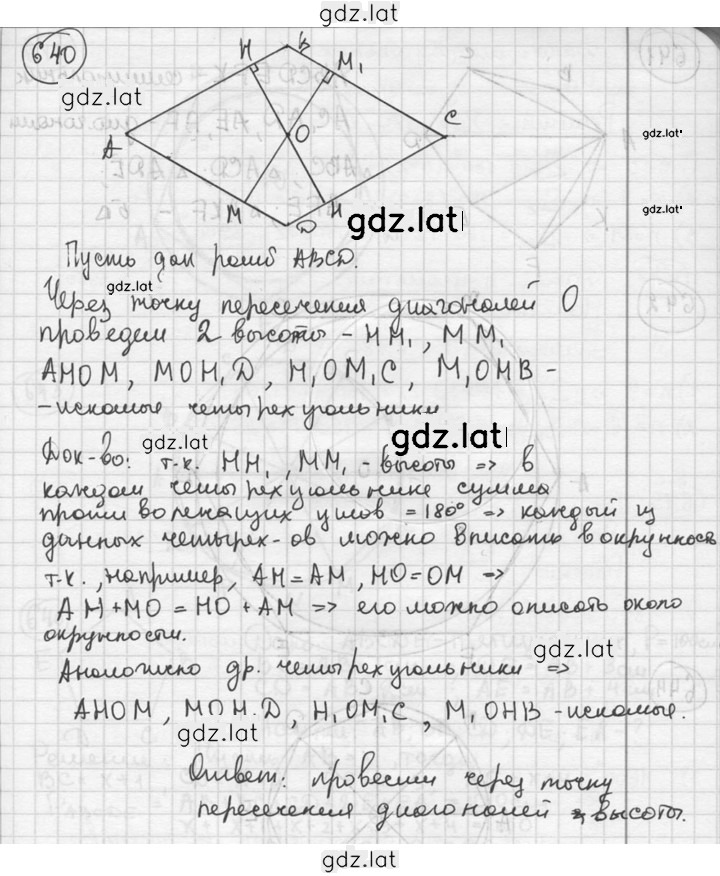 gdz.lat
640
H
B
M₁
gdz.lat
C
A
O
gdz.lat
M
Д
H
gdz.lat
gdz.lat
Пусть дан ромб ABCD.
gdz.lat
Через точку пересечения диагоналей O
проведем 2 высоты - HH₁, MM₁
AHOM, MOH₁Д, H₁OM₁C, M₁OHB -
- искомые четырехугольники
gdz.lat
gdz.lat
Док-во: т.к. HH₁, MM₁ - высоты => в
каждом четырехугольнике сумма
противолежащих углов = 180° => каждый из
данных четырех-ов можно вписать в окружность
т.к., например, AH=AM, HO=OM =>
AM+MO = HO+AM => его можно описать около
окружности.
gdz.lat
Аналогично др. четырехугольники =>
AHOM, MOH₁Д, H₁OM₁C, M₁OHB - искомые.
gdz.lat
Ответ: провести через точку
пересечения диагоналей высоты.
gdz.lat